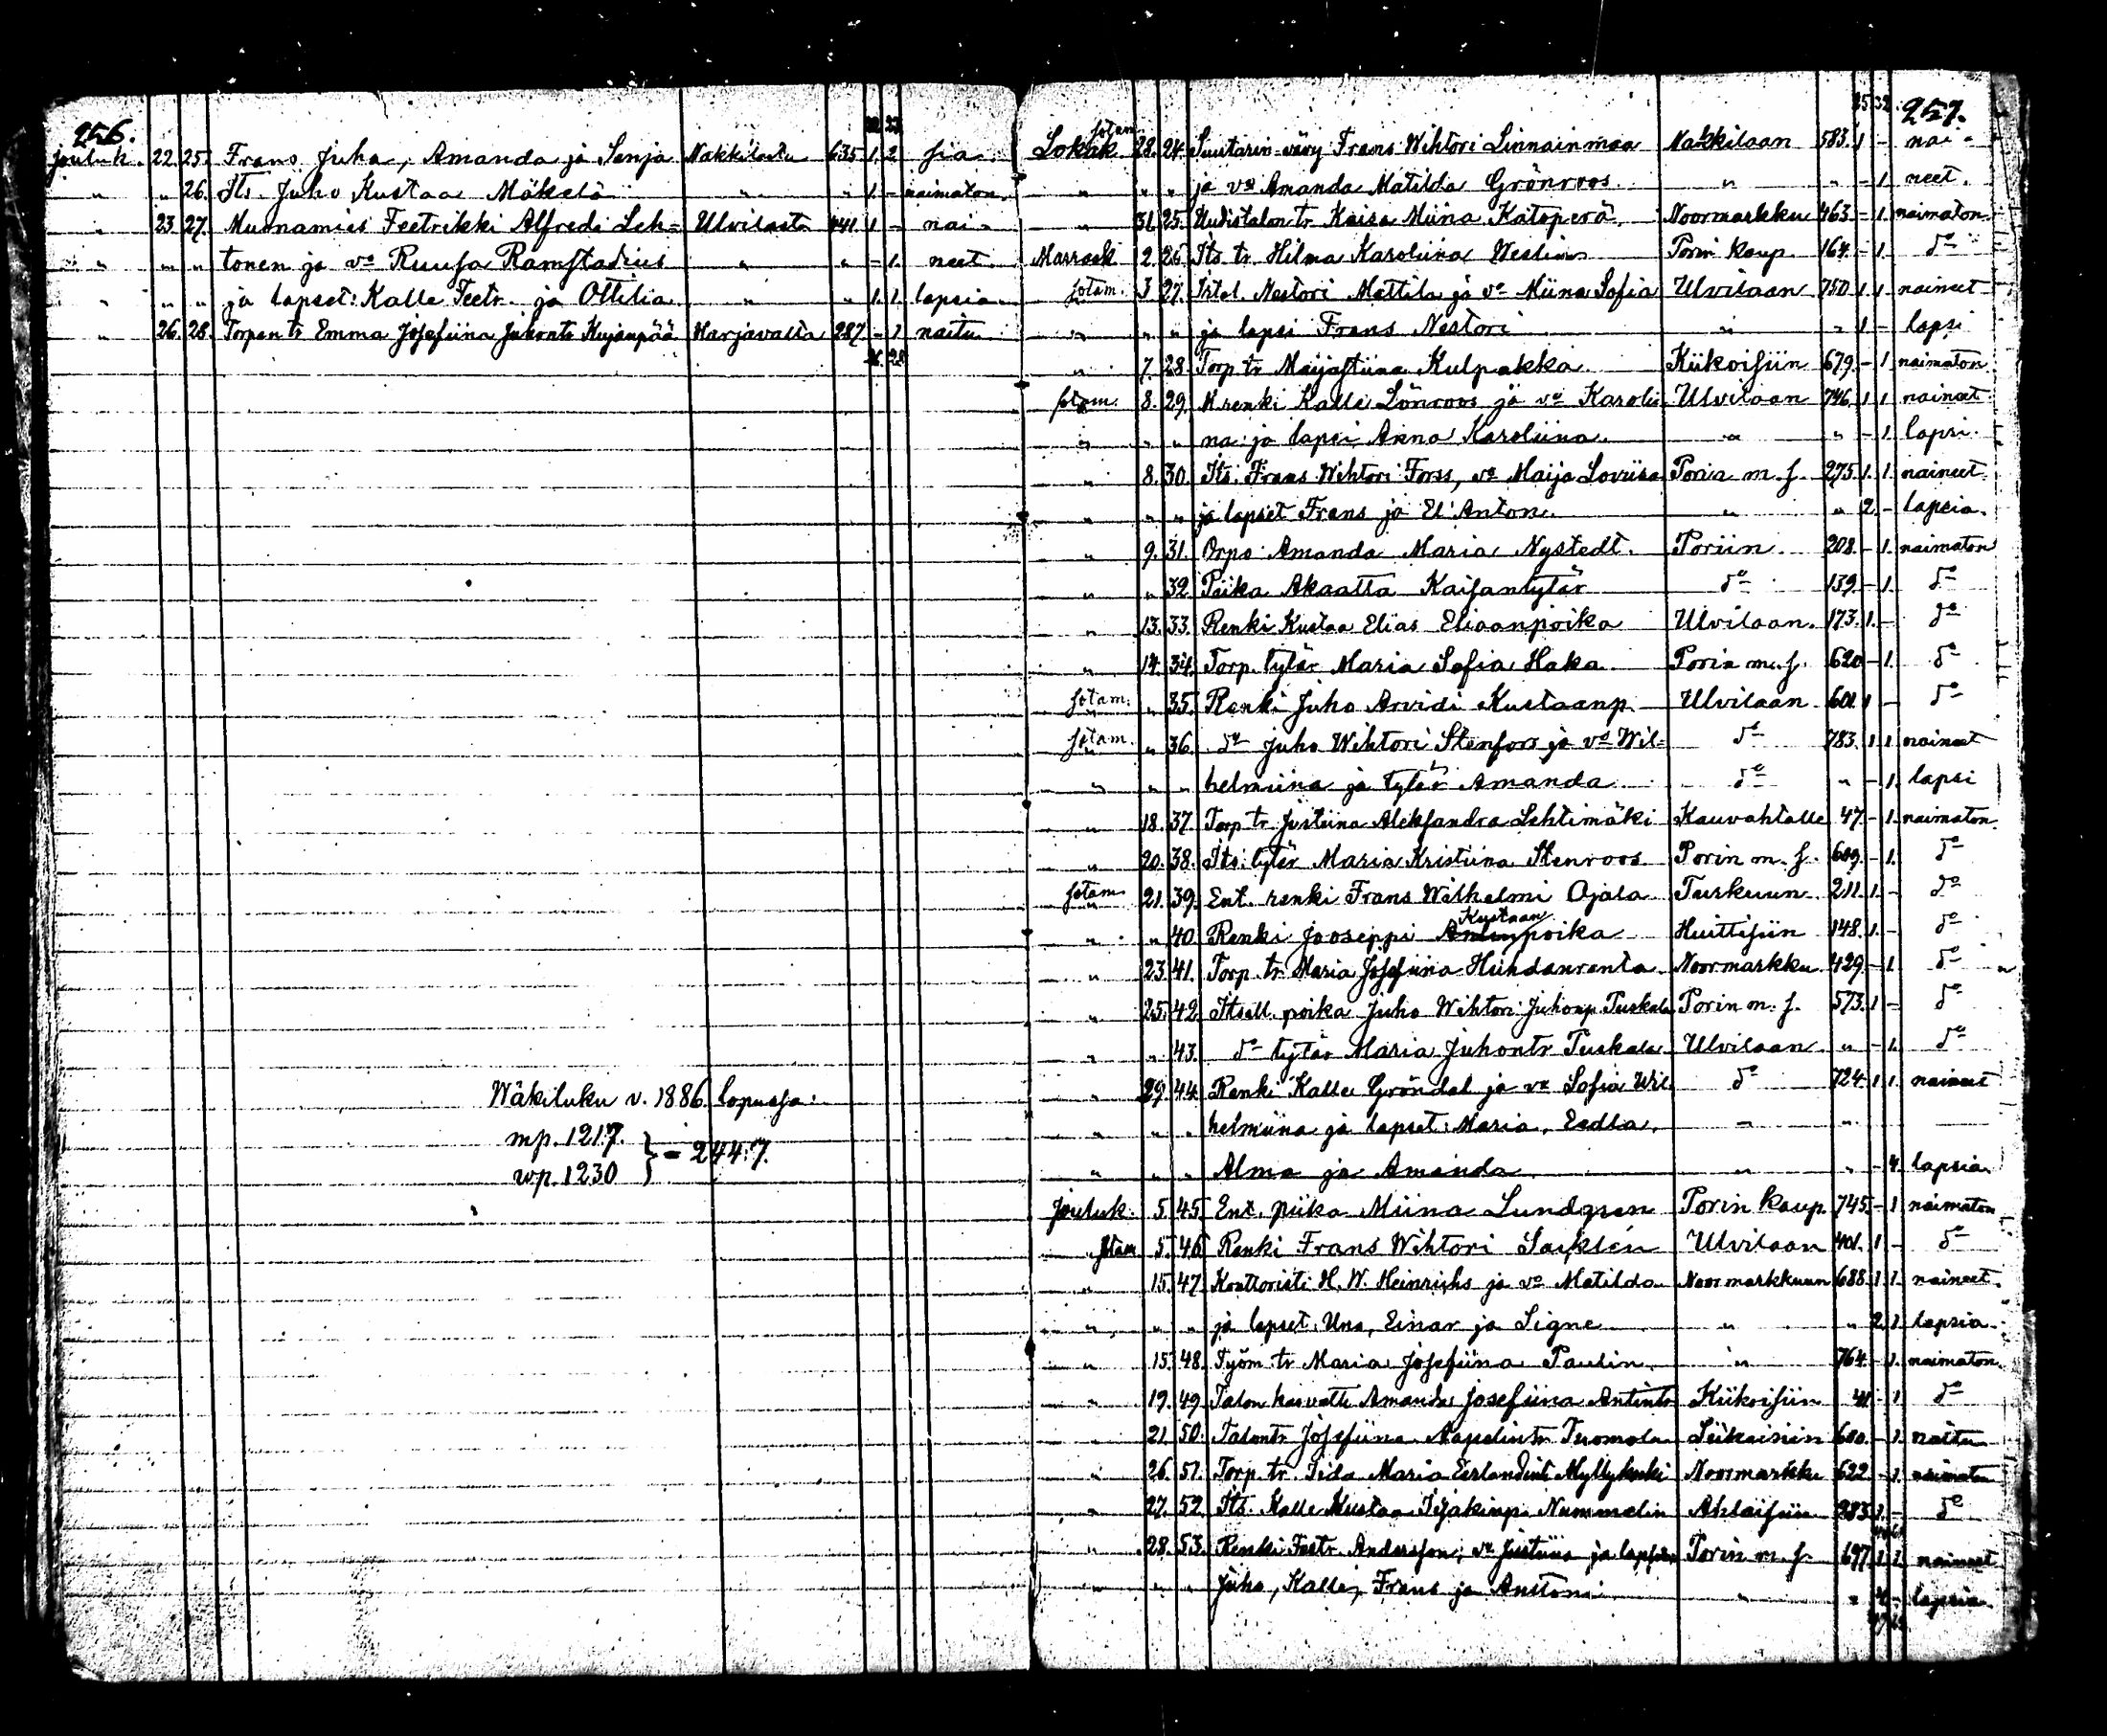 256.
22 23
jouluk. 22. 25. Frans Juha, Amanda ja Senja Nakkilasta 635 1. 2 sia
" " 26. Its. Juho Kustaa Mäkelä " " 1. - naimaton
" 23 27. Muonamies Feetrikki Alfredi Leh= Ulvilasta 441 1 - nai-
" " " tonen ja vo Ruusa Ramstadius " " - 1. neet
" " " ja lapset: Kalle Feetr. ja Ottilia " " 1. 1. lapsia
" 26. 28. Torpan tr Emma Josefiina Juhontr Kujanpää Harjavalta 287 - 1 naitu
26 28
Wäkiluku v. 1886 lopussa:
mp. 1217.
wp. 1230 } = 2447.
25 32 257.
Lokak sotam. 28. 24. Suutarin värv Frans Wihtori Linnainmaa Nakkilaan 583. 1 - nai-
" " " ja vo Amanda Matilda Grönroos " " - 1 neet.
" 31. 25. Uudistalon tr Kaisa Miina Kataperä Noormarkku 463 - 1. naimaton
Marrask 2. 26 Its tr Hilma Karoliina Weslin Porin kaup. 164. - 1 do
sotam. 3 27. Itsl. Nestori Mattila ja vo Miina Sofia Ulvilaan 750 1 1 naineet
" " " ja lapsi Frans Nestori " " 1 - lapsi
" 7. 28 Torp tr Maijastiina Kulpakka Kiikoisiin 679. - 1 naimaton
sotam. 8. 29. M renki Kalle Lönroos ja vo Karolii Ulvilaan 746. 1 1 naineet
" " " na ja lapsi Anna Karoliina " " - 1 lapsi.
" 8. 30. Its. Frans Wihtori Forss, vo Maija Loviisa Porin m. s. 275. 1. 1. naineet
" " " ja lapset Frans ja El. Anton " " 2 - lapsia.
" 9. 31. Orpo Amanda Maria Nystedt. Poriin 208. - 1. naimaton
" " 32. Piika Akaatta Kaisantytär do 139. - 1. do
" 13. 33. Renki Kustaa Elias Eliaanpoika Ulvilaan. 173. 1. - do
" 14. 34. Torp. tytär Maria Sofia Haka Porin m. s. 620 - 1. do
sotam. " 35. Renki Juho Arvidi Kustaanp. Ulvilaan 601. 1 - do
sotam. " 36. do Juho Wihtori Stenfors ja vo Wil= do 783. 1 1 naineet
" " " helmiina ja tytär Amanda do " - 1. lapsi
" 18. 37. Torp tr. Justiina Aleksandra Lehtimäki Kauvahtalle 47 - 1. naimaton
" 20. 38. Its: tytär Maria Kristiina Stenroos Porin m. s. 609. - 1. do
sotam. 21. 39. Ent. renki Frans Wilhelmi Ojala Turkuun 211. 1. - do
" " 40 Renki Jooseppi Kustaanpoika Huittisiin 148. 1. - do
" 23. 41. Torp. tr. Maria Josefiina Huhdanranta Noormarkku 429 - 1 do
" 25. 42. Itsell. poika Juho Wihtori Juhonp. Tuskala Porin m. s. 573. 1 - do
" " 43. do tytär Maria Juhontr Tuskala Ulvilaan " - 1. do
" 29. 44. Renki Kalle Gröndal ja vo Sofia Wil= do 724 1 1. naineet
" " " helmiina ja lapset: Maria, Eedla, - "
" " " Alma ja Amanda " " - 4 lapsia
Jouluk. 5. 45. Ent. piika Miina Lundgren Porin kaup 745 - 1 naimaton
sotam 5. 46 Renki Frans Wihtori Saxlén Ulvilaan 401. 1 - do
" 15. 47. Konttoristi H. W. Heinrichs ja vo Matilda Noormarkkuun 688. 1 1. naineet.
" " " ja lapset: Una, Einar ja Signe " " 2 1. lapsia
" 15. 48. Työm. tr Maria Josefiina Paulin " 764. - 1. naimaton.
" 19. 49 Talon kasvatti Amanda Josefiina Antintr Kiikoisiin 41 - 1 do
" 21. 50. Talontr Josefiina Aapelintr Tuomola Siikaisiin 600. - 1. naitu
" 26. 51. Torp. tr. Iida Maria Eerlandintr Myllykoski Noormarkku 622 - 1. naimaton
" 27. 52. Its. Kalle Kustaa Isakinp. Nummelin Ahlaisiin 283. 1. - do
" 28. 53. Renki Feetr. Andersson, vo Justiina ja lapset Porin m. s. 697. 1 1. naineet
" " " Juho, Kalle, Frans ja Anttoni " " 4 - lapsia